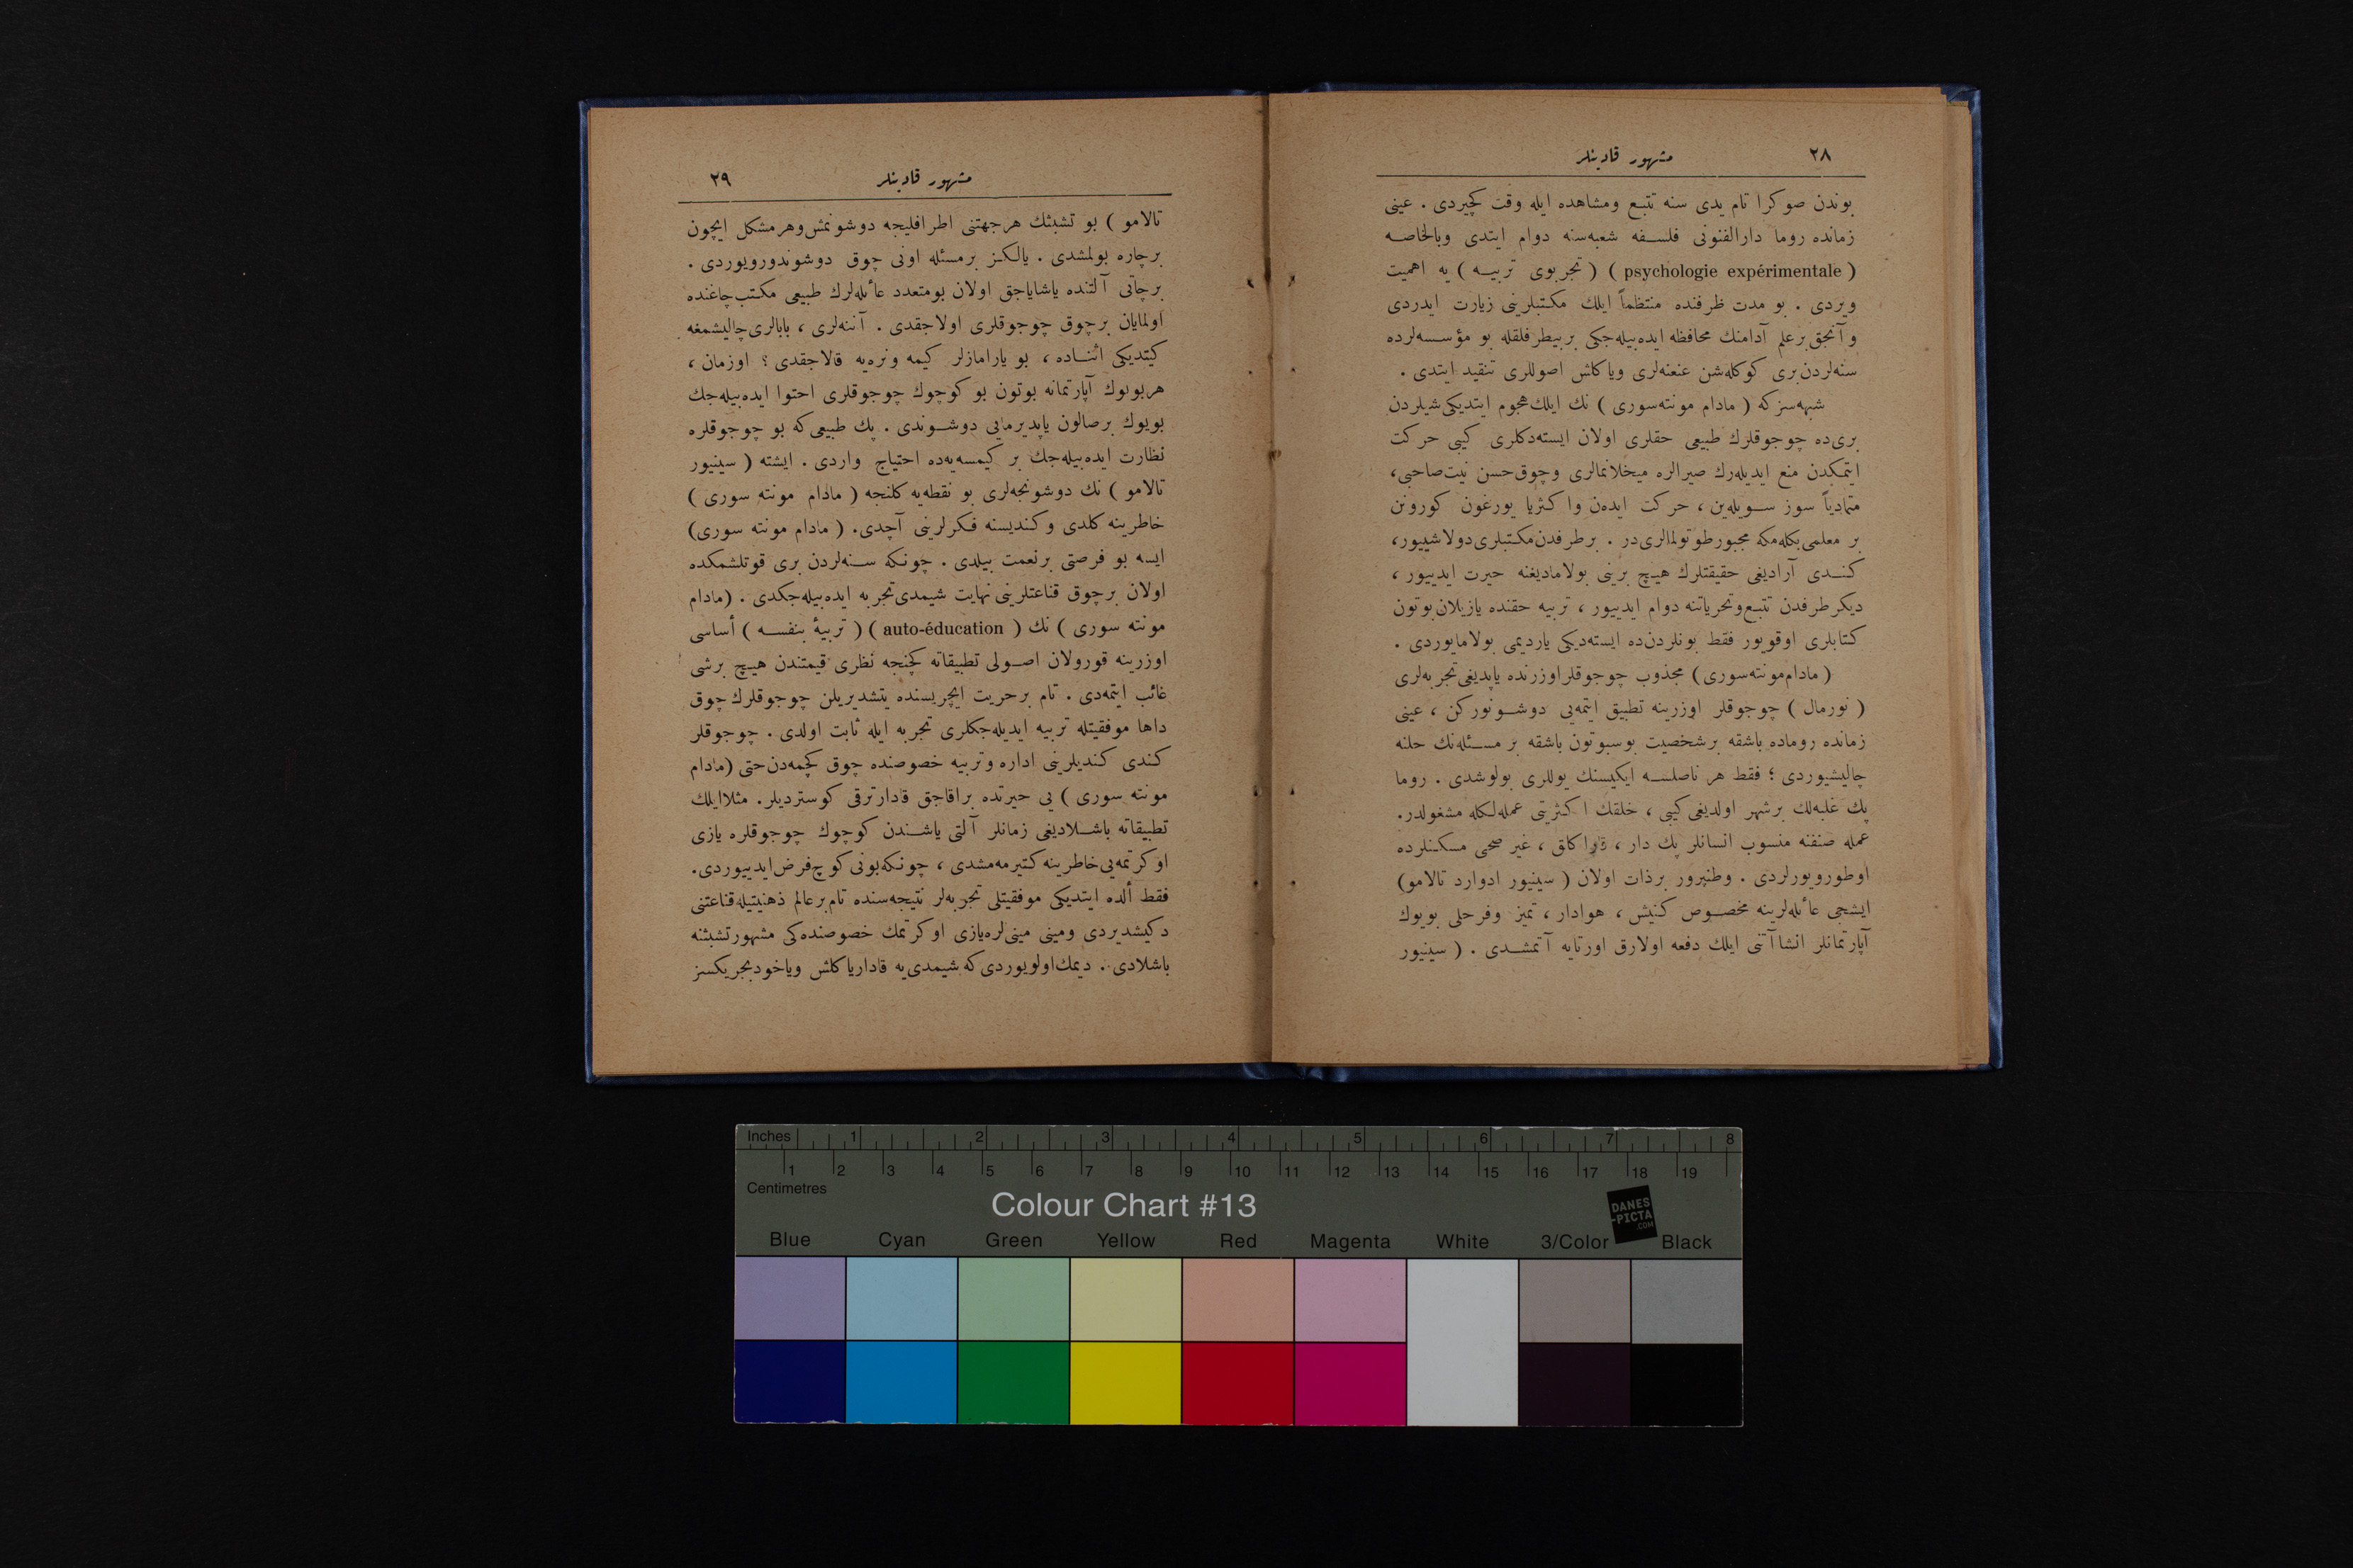 ٢٨
مشهور قادینلر
بوندن صوكرا تام یدی سنه تتبع ومشاهده ایله وقت كچیردی . عینی
زمانده روما دارالفنونی فلسفه شعبه‌سنه دوام ایتدی وبالخاصه
( psychologie expérimentale ) ( تجربوی تربیه ) یه اهمیت
ویردی . بو مدت ظرفنده منتظماً ایلك مكتبلرینی زیارت ایدردی
و آنجق برعلم آدامنك محافظه ایده‌بیله‌جكی بر بیطرفلقله بو مؤسسه‌لرده
سنه‌لردن‌بری كوكله‌شن عنعنه‌لری ویاكلش اصوللری تنقید ایتدی .
شبهه‌سز كه ( مادام مونته‌سوری ) نك ایلك هجوم ایتدیكی شیلردن
بری‌ده چوجوقلرك طبیعی حقلری اولان ایسته‌دكلری كبی حركت
ایتمكدن منع ایدیله‌رك صیرالره میخلانمالری وچوق حسن نیت‌صاحبی،
متمادیاً سوز سویله‌ین ، حركت ایده‌ن واكثریا یورغون كورونن
بر معلمی بكله‌مكه مجبورطوتولمالری‌در . برطرفدن‌مكتبلری‌دولاشییور،
كندی آرادیغی حقیقتلرك هیچ برینی بولامادیغنه حیرت ایدییور ،
دیكر طرفدن تتبع‌وتحریاتنه دوام ایدییور ، تربیه حقنده یازیلان بوتون
كتابلری اوقویور فقط بونلردن‌ده ایسته‌دیكی یاردیمی بولامایوردی .
( مادام‌مونته‌سوری ) مجذوب چوجوقلراوزرنده یاپدیغی تجربه‌لری
( نورمال ) چوجوقلر اوزرینه تطبیق ایتمه‌یی دوشونوركن ، عینی
زمانده روماده باشقه برشخصیت بوسبوتون باشقه بر مسئله‌نك حلنه
چالیشیوردی ؛ فقط هر ناصلسه ایكیسنك یوللری بولوشدی . روما
پك غلبه‌لك برشهر اولدیغی كبی ، خلقك اكثریتی عمله‌لكله مشغولدر.
عمله صنفنه منسوب انسانلر پك دار ، قاراكلق ، غیر صحی مسكنلرده
اوطورویورلردی . وطنپرور برذات اولان ( سینیور ادوارد تالامو)
ایشجی عائله‌لرینه مخصوص كنیش ، هوادار ، تمیز وفرحلی بویوك
آپارتمانلر انشاآتنی ایلك دفعه اولارق اورتایه آتمشدی . ( سینیور
مشهور قادینلر
٢٩
تالامو ) بو تشبثك هرجهتنی اطرافلیجه دوشونمش‌وهرمشكل ایچون
برچاره بولمشدی . یالكز برمسئله اونی چوق دوشوندورویوردی .
برچاتی آلتنده یاشایاجق اولان بومتعدد عائله‌لرك طبیعی مكتب‌چاغنده
اولمایان برچوق چوجوقلری اولاجقدی . آننه‌لری ، بابالری‌چالیشمغه
كیتدیكی اثناده ، بو یارامازلر كیمه ونره‌یه قالاجقدی ؟ اوزمان ،
هربویوك آپارتمانه بوتون بو كوچوك چوجوقلری احتوا ایده‌بیله‌جك
بویوك برصالون یاپدیرمایی دوشوندی . پك طبیعی‌كه بو چوجوقلره
نظارت ایده‌بیله‌جك بر كیمسه‌یه‌ده احتیاج واردی . ایشته ( سینیور
تالامو ) نك دوشونجه‌لری بو نقطه‌یه كلنجه ( مادام مونته سوری )
خاطرینه كلدی وكندیسنه فكرلرینی آچدی. ( مادام مونته سوری)
ایسه بو فرصتی برنعمت بیلدی . چونكه سنه‌لردن بری قوتلشمكده
اولان برچوق قناعتلرینی نهایت شیمدی تجربه ایده‌بیله‌جكدی . (مادام
مونته سوری ) نك ( auto-éducation ) ( تربیۀ بنفسه ) أساسی
اوزرینه قورولان اصولی تطبیقاته كچنجه نظری قیمتندن هیچ برشی
غائب ایتمه‌دی . تام برحریت ایچریسنده یتشدیریلن چوجوقلرك چوق
داها موفقیتله تربیه ایدیله‌جكلری تجربه ایله ثابت اولدی . چوجوقلر
كندی كندیلرینی اداره وتربیه خصوصنده چوق كچمه‌دن‌حتی (مادام
مونته سوری ) یی حیرتده براقاجق قادارترقی كوستردیلر. مثلاایلك
تطبیقاته باشلادیغی زمانلر آلتی یاشندن كوچوك چوجوقلره یازی
اوكرتمه‌یی‌خاطرینه كتیرمه‌مشدی ، چونكه‌بونی كوچ‌فرض‌ایدییوردی.
فقط ألده ایتدیكی موفقیتلی تجربه‌لر نتیجه‌سنده تام‌برعالم ذهنیتیله‌قناعتنی
دكیشدیردی ومینی مینی‌لره‌یازی اوكرتمك خصوصنده‌كی مشهورتشبثنه
باشلادی . دیمك‌اولویوردی‌كه شیمدی‌یه قاداریاكلش ویاخود
Inches 1 2 3 4 5 6 7 8
1 2 3 4 5 6 7 8 9 10 11 12 13 14 15 16 17 18 19
Centimetres
Colour Chart #13
DANES
-PICTA
.COM
Blue Cyan Green Yellow Red Magenta White 3/Color Black